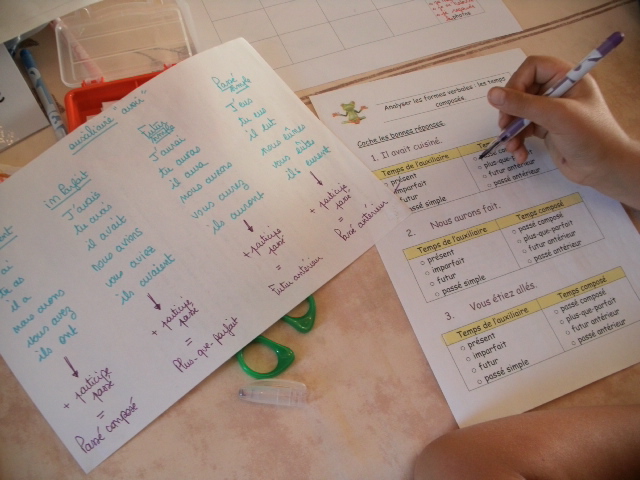 auxiliaire "avoir"
ent
ai
as
il a
nous avons
vous avez
ils ont
+ participe
passé
=
Passé composé
imparfait
J'avais
tu avais
il avait
nous avions
vous aviez
ils avaient
+ participe
passé
=
Plus-que-parfait
Futur
simple
J'aurai
tu auras
il aura
nous aurons
vous aurez
ils auront
+ participe
passé
=
Futur antérieur
Passé
simple
J'eus
tu eus
il eut
nous eûmes
vous eûtes
ils eurent
+ participe
passé
=
Passé antérieur
Analyser les formes verbales : les temps
composés.
Coche les bonnes réponses.
1. Il avait cuisiné.
Temps de l'auxiliaire
présent
imparfait
futur
passé simple
Te
passé co
plus-que-pa
futur antérieur
passé antérieur
2. Nous aurons fait.
Temps de l'auxiliaire
présent
imparfait
futur
passé simple
Temps composé
passé composé
plus-que-parfait
futur antérieur
passé antérieur
3. Vous étiez allés.
Temps de l'auxiliaire
présent
imparfait
futur
passé simple
Temps composé
passé composé
plus-que-parfait
futur antérieur
passé antérieur